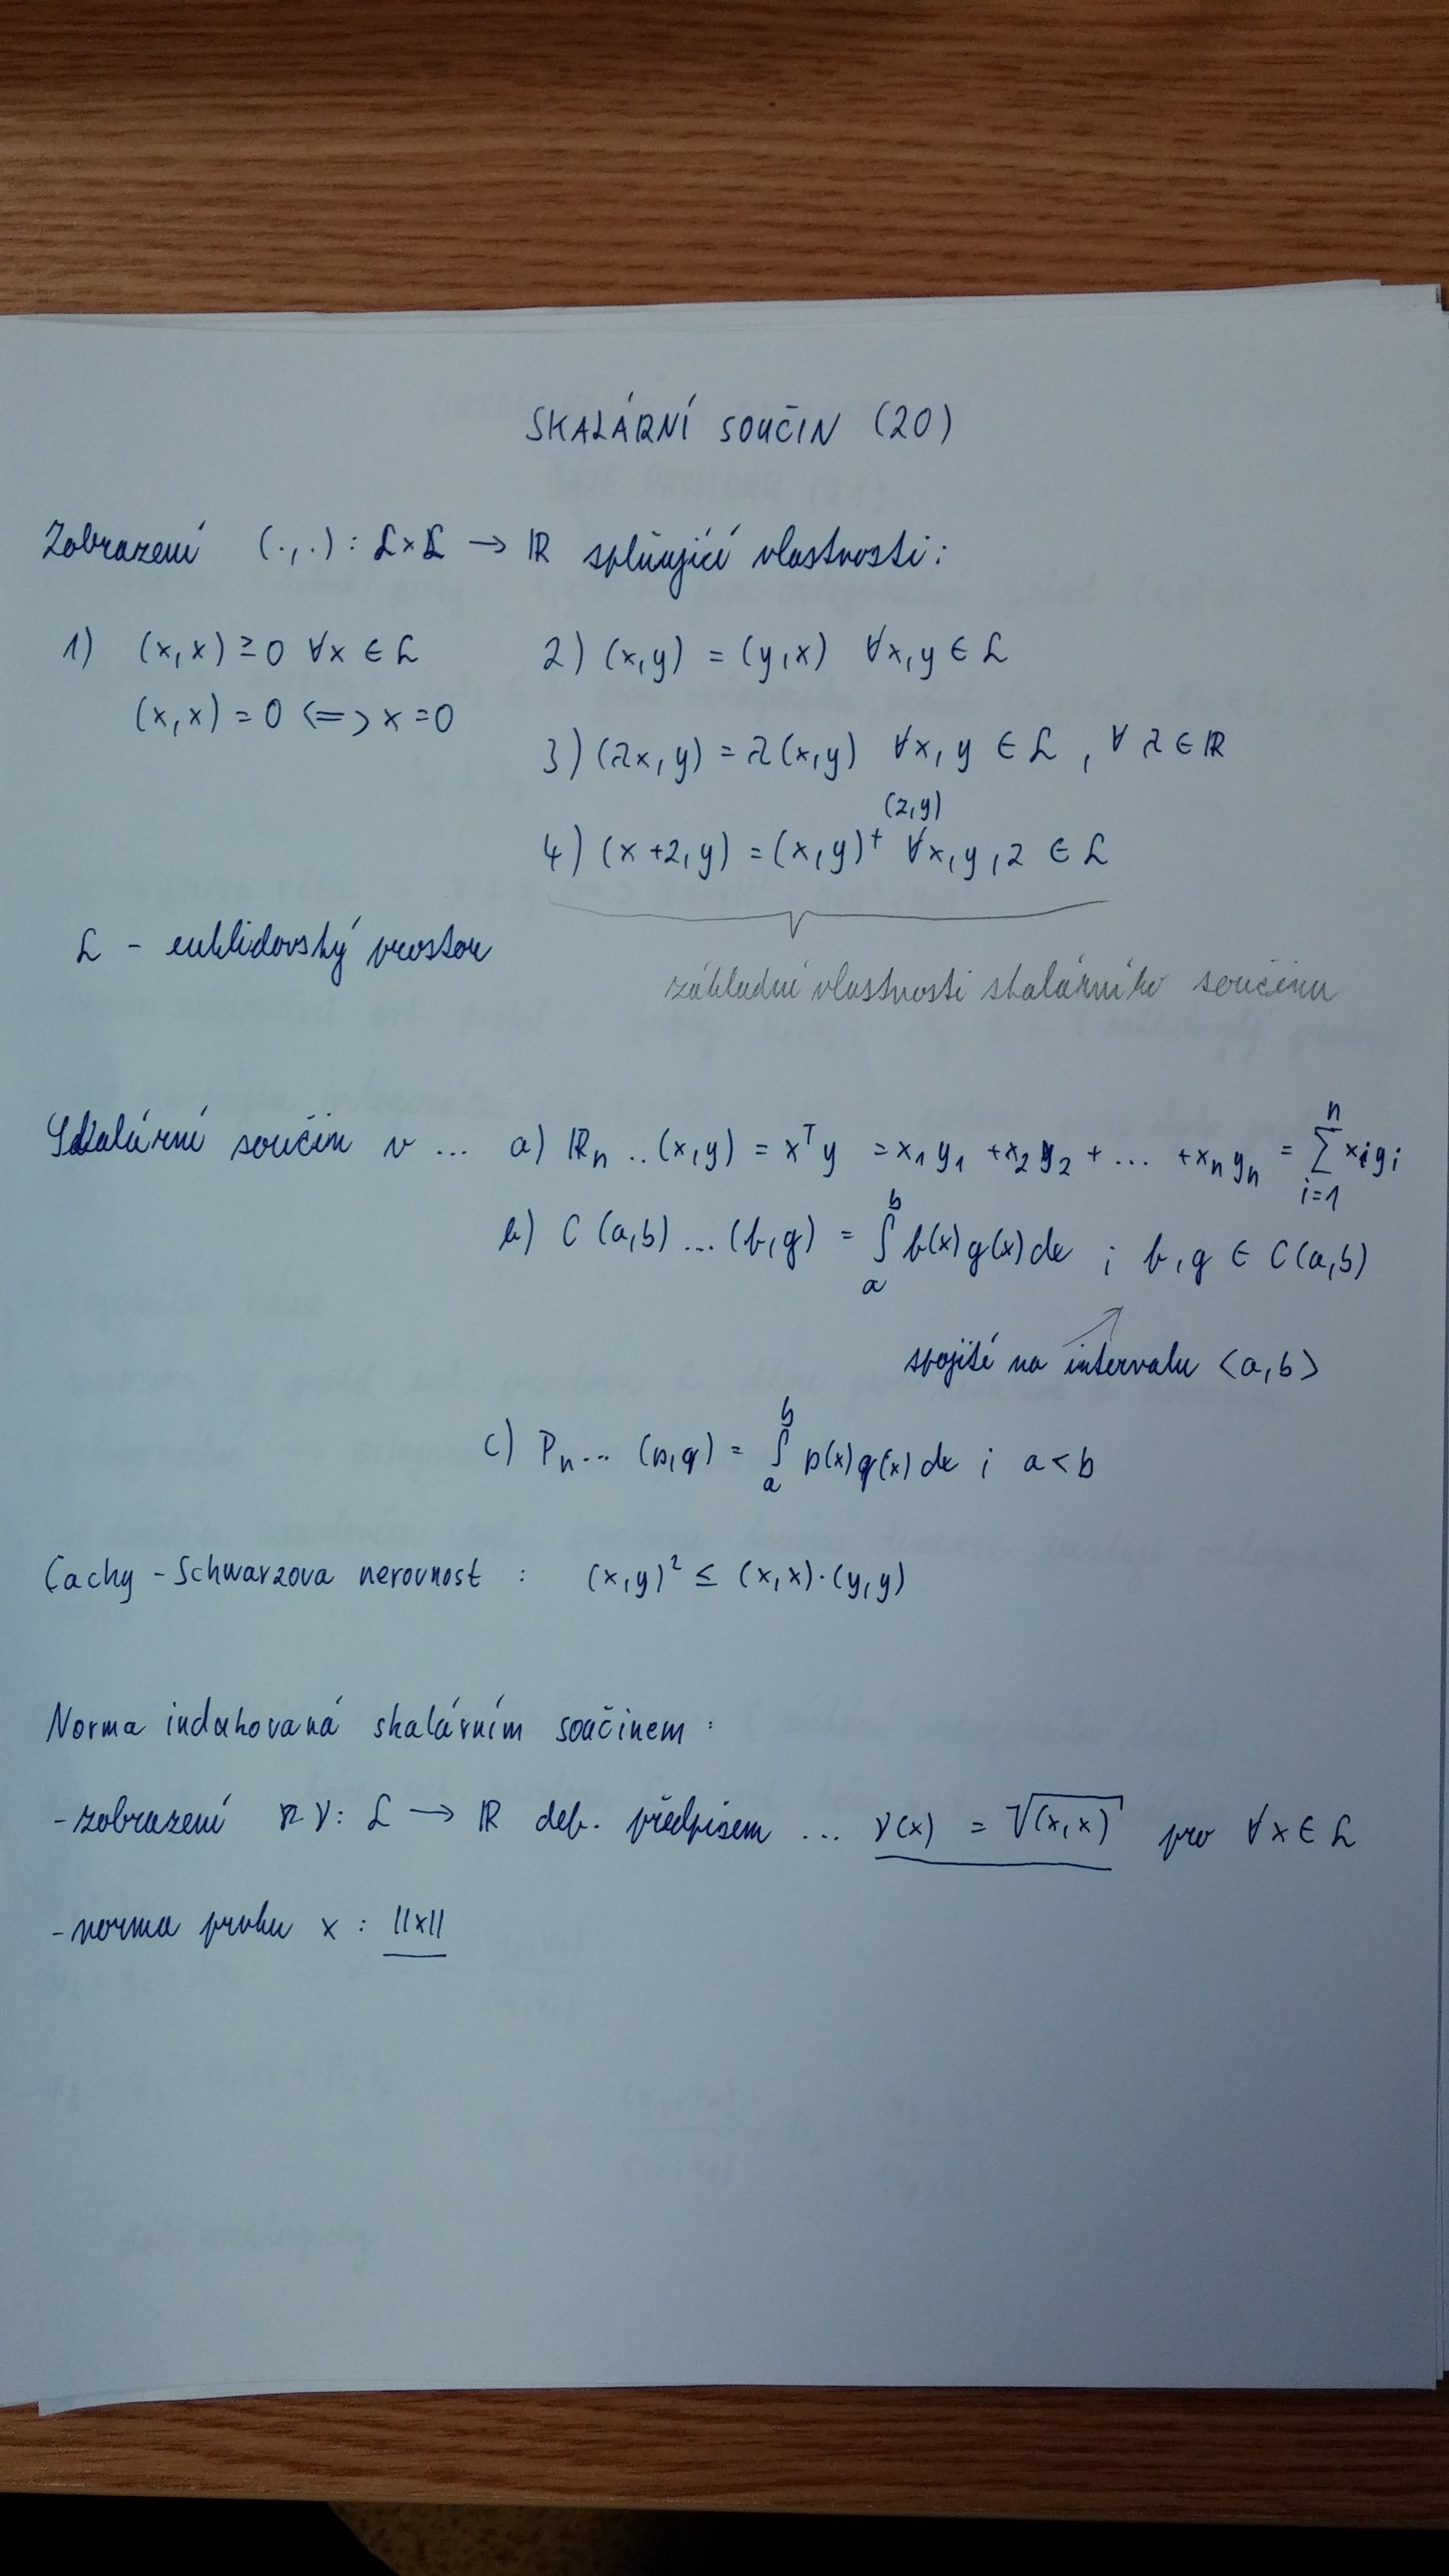 SKALÁRNÍ SOUČIN (20)
Zobrazení (.,.) : L×L → ℝ splňující vlastnosti:
1) (x,x) ≥ 0 ∀x ∈ L
(x,x) = 0 <=> x = 0
2) (x,y) = (y,x) ∀x,y ∈ L
3) (λx,y) = λ(x,y) ∀x,y ∈ L, ∀ λ ∈ ℝ
(z,y)
4) (x+z,y) = (x,y)+ ∀x,y,z ∈ L
L - euklidovský prostor
základní vlastnosti skalárního součinu
Skalární součin v ... a) ℝn .. (x,y) = xᵀy = x₁y₁ + x₂y₂ + ... + xₙyₙ = ∑ᵢ₌₁ⁿ xᵢyᵢ
b) C(a,b) ... (f,g) = ∫ₐᵇ f(x)g(x)dx ; f,g ∈ C(a,b)
spojité na intervalu <a,b>
c) Pₙ... (p,q) = ∫ₐᵇ p(x)q(x)dx ; a<b
Cachy - Schwarzova nerovnost : (x,y)² ≤ (x,x)·(y,y)
Norma indukovaná skalárním součinem :
-zobrazení ν: L → ℝ def. předpisem ... ν(x) = √(x,x) pro ∀x ∈ L
-norma prvku x : ||x||